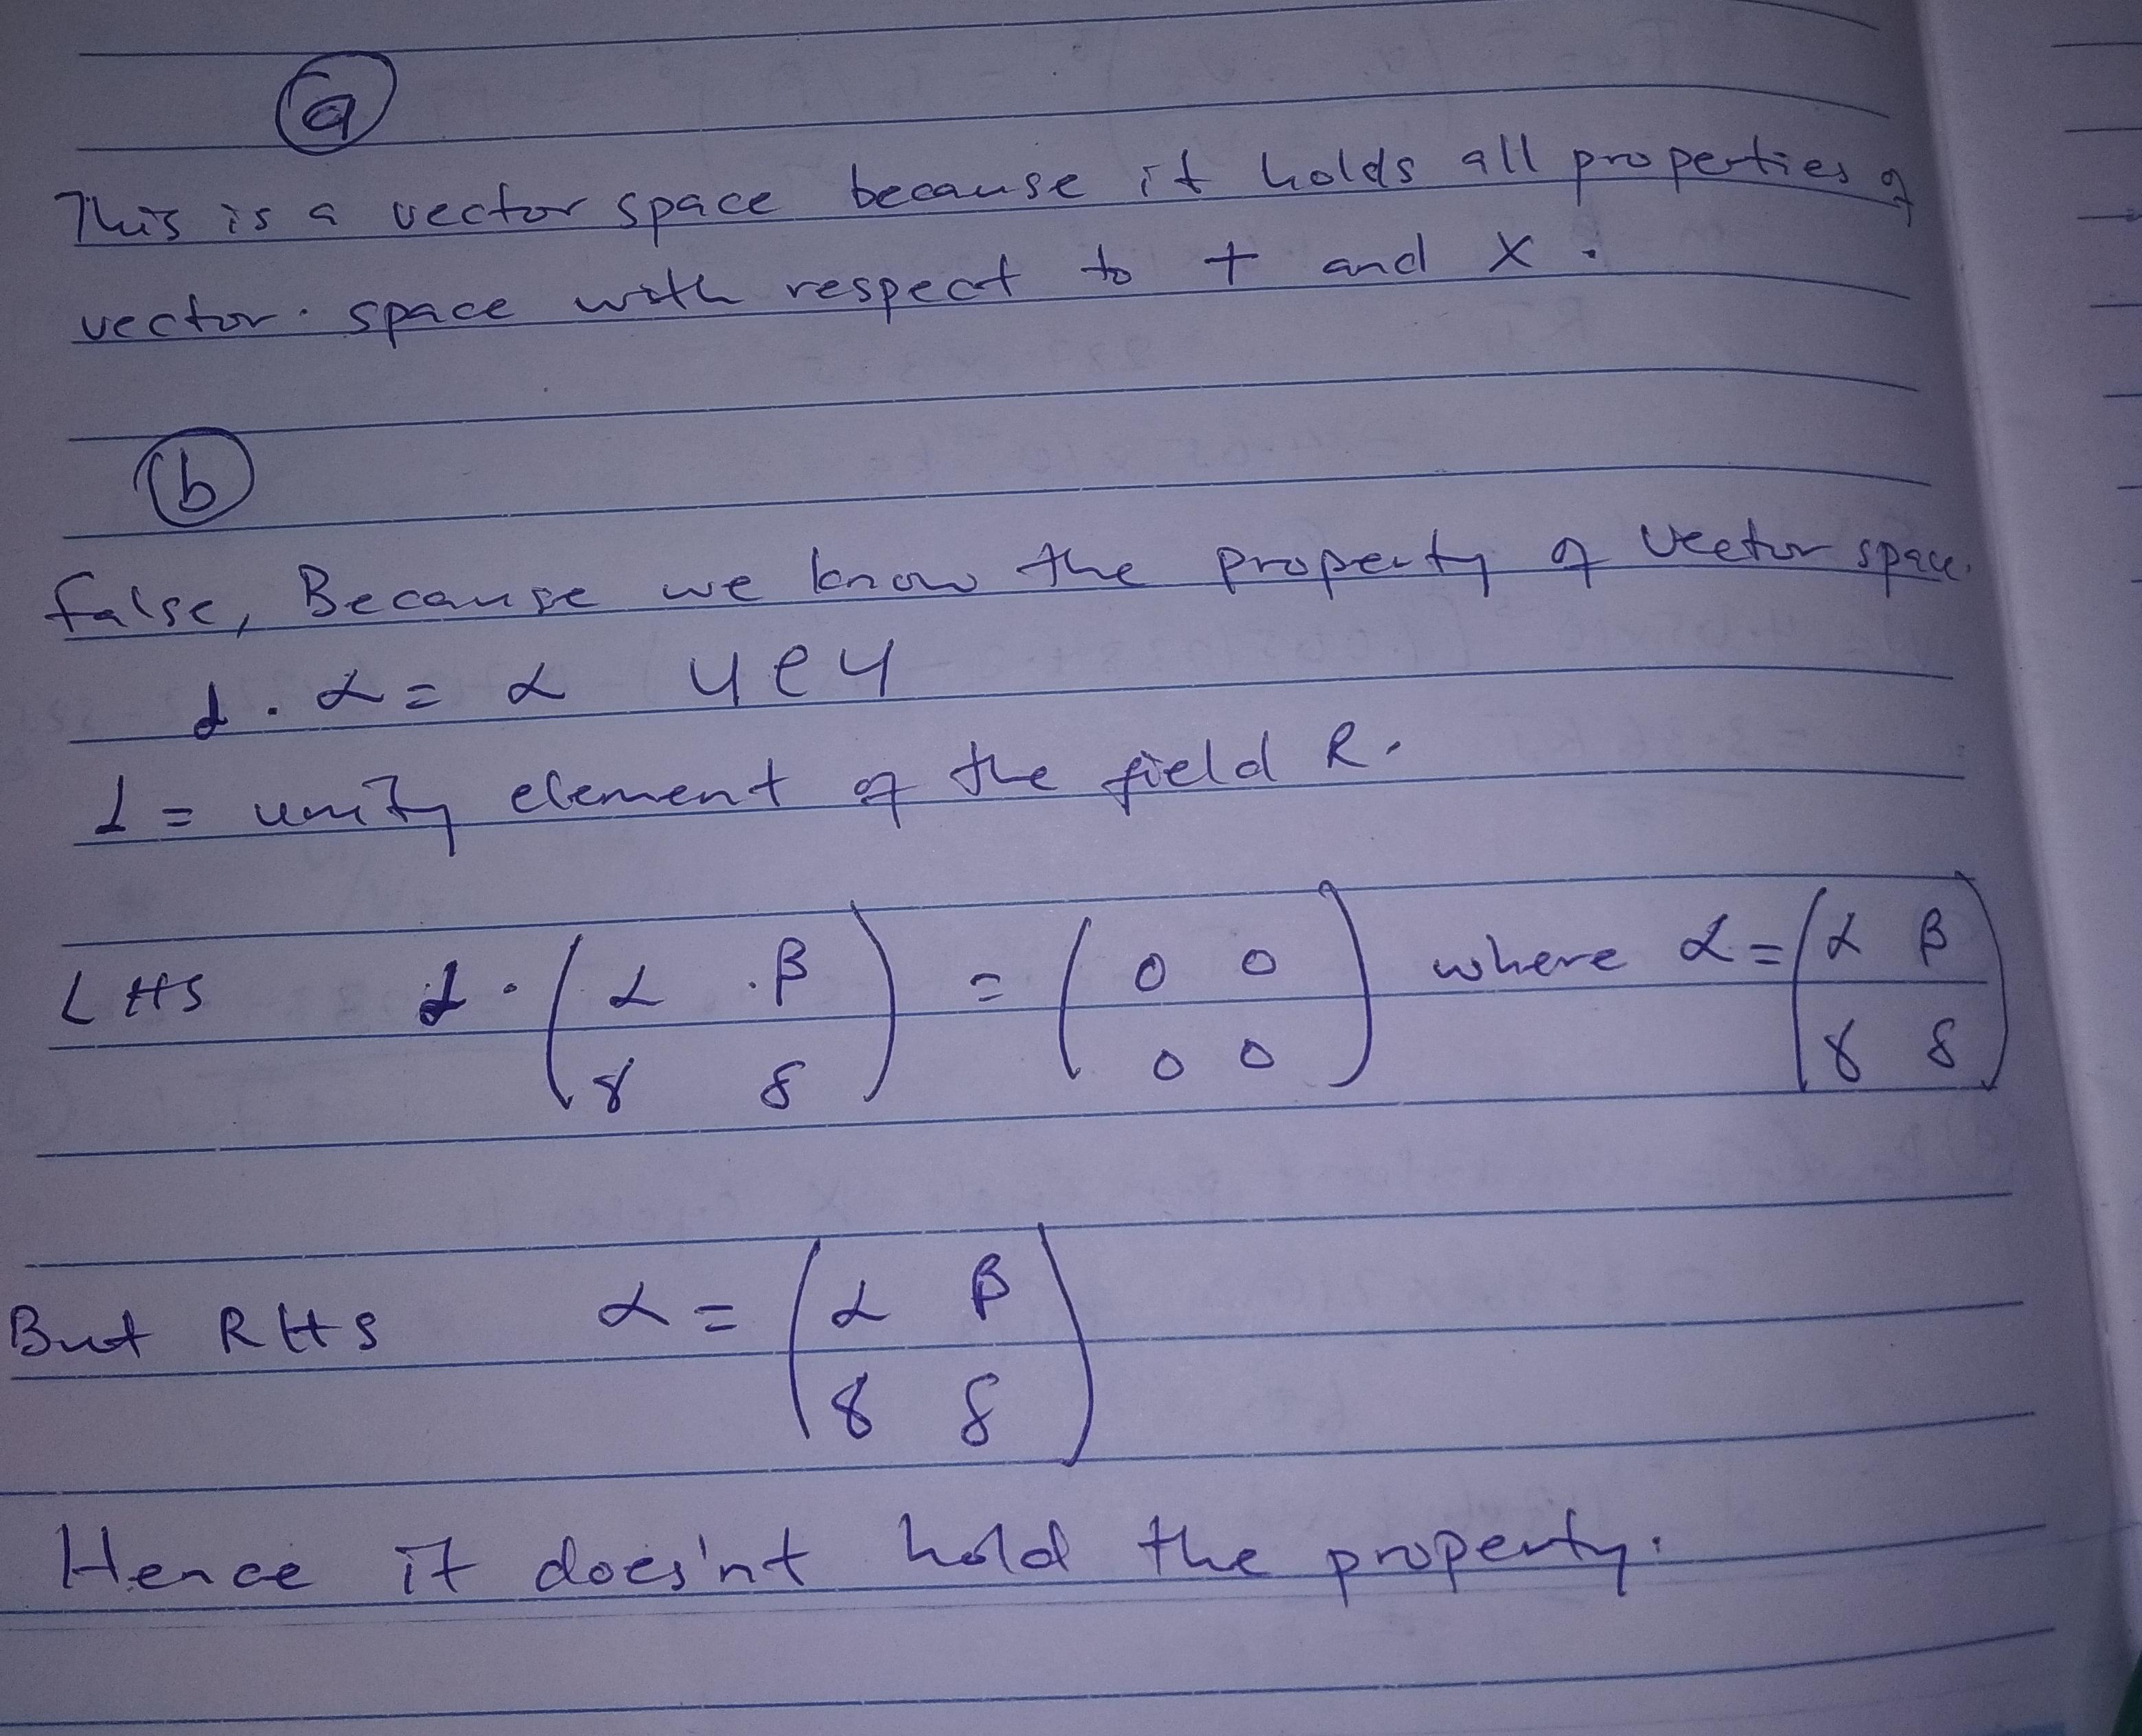 a
This is a vector space because it holds all properties of
vector. space with respect to + and X.
b
false, Because we know the property of vector space.
1 . α = α
1 = unity element of the field R.
LHS 1 . ( α . β ) = ( 0 0 ) where α = ( α β )
γ δ 0 0 γ δ
But RHS α = ( α β )
γ δ
Hence it does'nt hold the property.